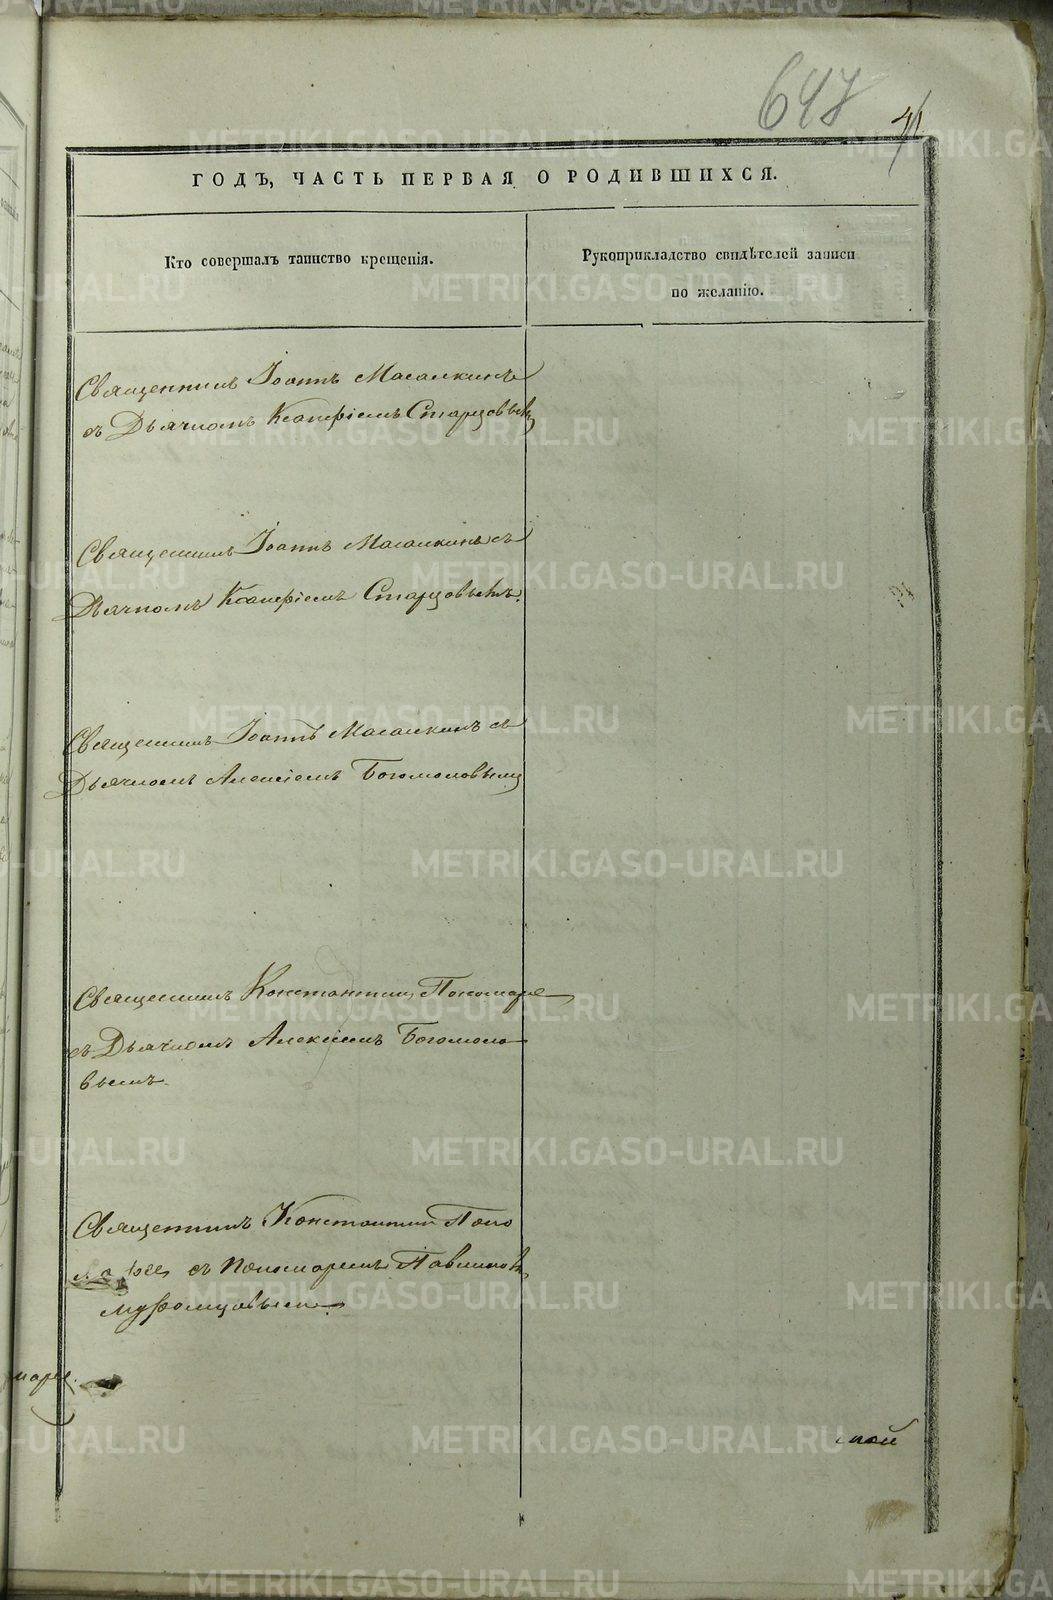 647
ГОДЪ, ЧАСТЬ ПЕРВАЯ О РОДИВШИХСЯ.
Кто совершалъ таинство крещенія.
Рукоприкладство свидѣтелей записи
по желанію.
Священникъ Іоаннъ Масалкинъ
съ Дьячкомъ Ксанфіемъ Старцовымъ
Священникъ Іоаннъ Масалкинъ съ
Дьячкомъ Ксанфіемъ Старцовымъ.
Священникъ Іоаннъ Масалкинъ съ
Дьячкомъ Алексіемъ Богомоловымъ
Священникъ Константинъ Пономаре
съ Дьячкомъ Алексіемъ Богомоло
вымъ.
Священникъ Константинъ Поно
съ Пономаремъ Павлиномъ
Муромцовымъ.
METRIKI.GASO-URAL.RU